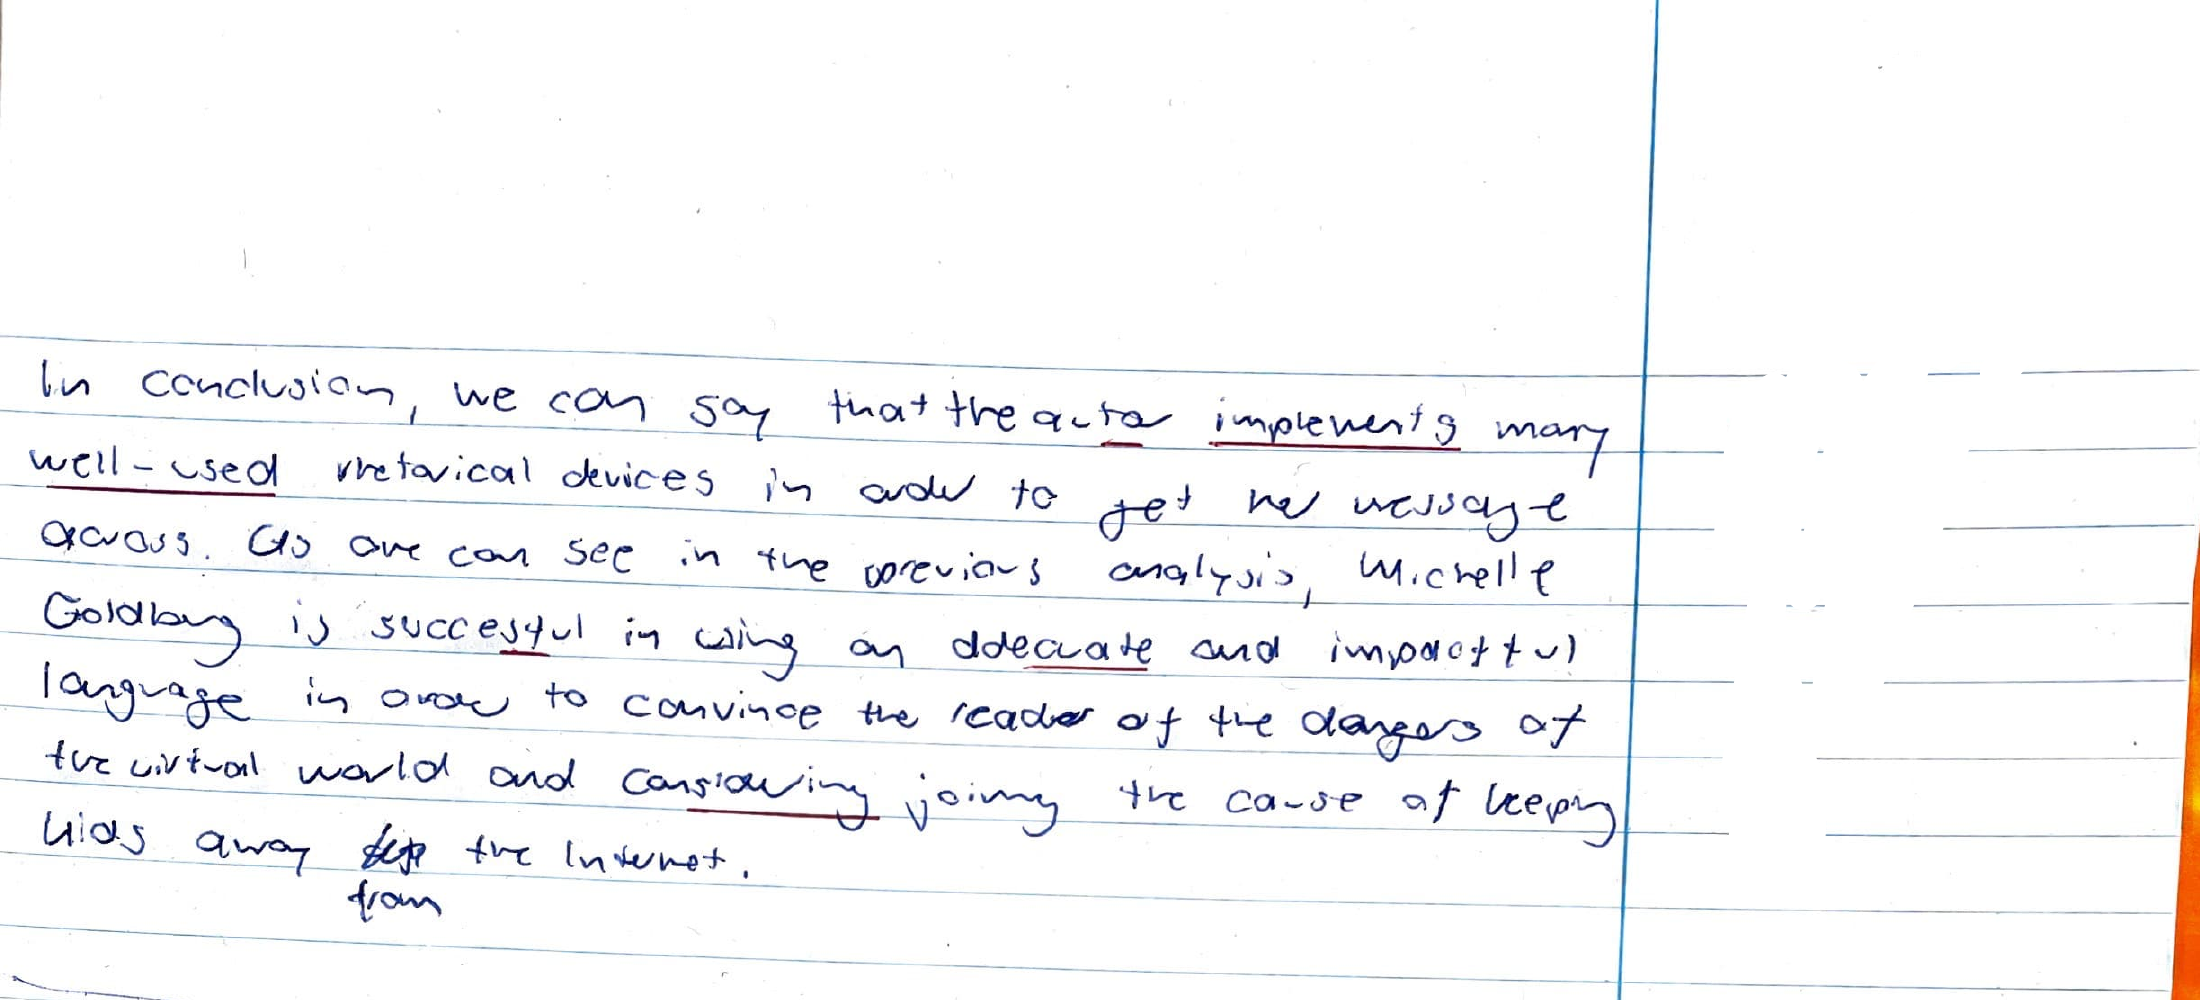 In conclusion, we can say that the autor implements many
well-used rhetorical devices in order to get her message
across. As one can see in the previous analysis, Michelle
Goldberg is succesful in using an adecuate and impactful
language in order to convince the reader of the dangers of
the virtual world and considering joining the cause of keeping
kids away the Internet.
from